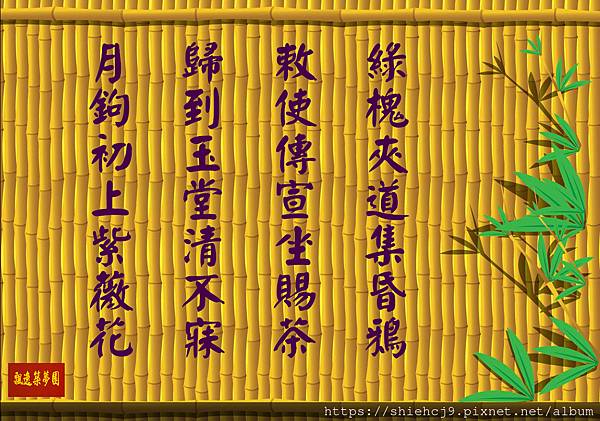 綠槐夾道集昏鴉
敕使傳宣坐賜茶
歸到玉堂清不寐
月鉤初上紫薇花
飄逸築夢園
https://shiehcj9.pixnet.net/album